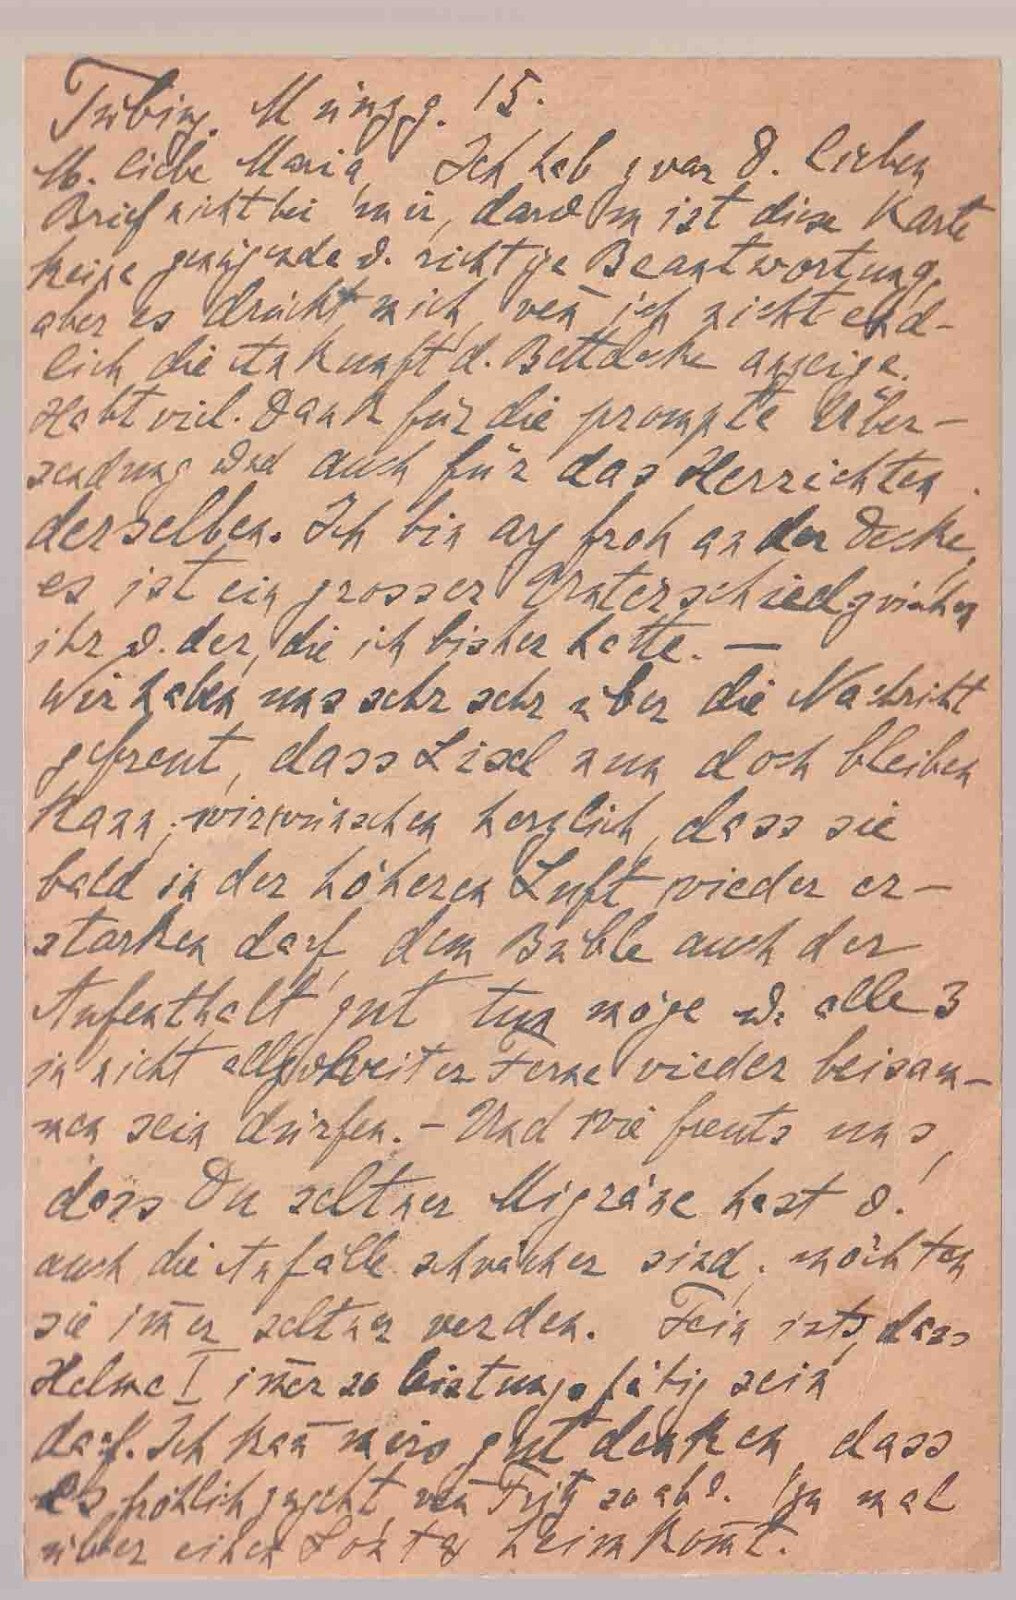 Tübing. Münzg. 15.
M. liebe Maria, Ich hab zwar D. lieben
Brief nicht bei mir, darum ist diese Karte
keine genügende u. richtige Beantwortung,
aber es drückt mich, wen̄ ich nicht end-
lich die Ankunft d. Bettdecke anzeige.
Habt viel. Dank für die prompte Über-
sendung und auch für das Herrichten
derselben. Ich bin arg froh an der Decke,
es ist ein grosser Unterschied zwischen
ihr u. der, die ich bisher hatte. —
Wir haben uns sehr sehr über die Nachricht
gefreut, dass Lisel nun doch bleiben
kann; wir wünschen herzlich, dass sie
bald in der höheren Luft wieder er-
starken darf, dem Büble auch der
Aufenthalt gut tun möge u. alle 3
in nicht allzu weiter Ferne wieder beisam-
men sein dürfen. - Und wie freuts uns,
dass Du seltner Migräne hast u.
auch die Anfälle schwächer sind; möchten
sie im̄er seltner werden. Fein ists, dass
Helme I im̄er so leistungsfähig sein
darf. Ich kan̄ mirs gut denken, dass
es fröhlich zugeht, wen̄ Fritz so ab u. zu mal
über einen Sonntag heimkom̄t.